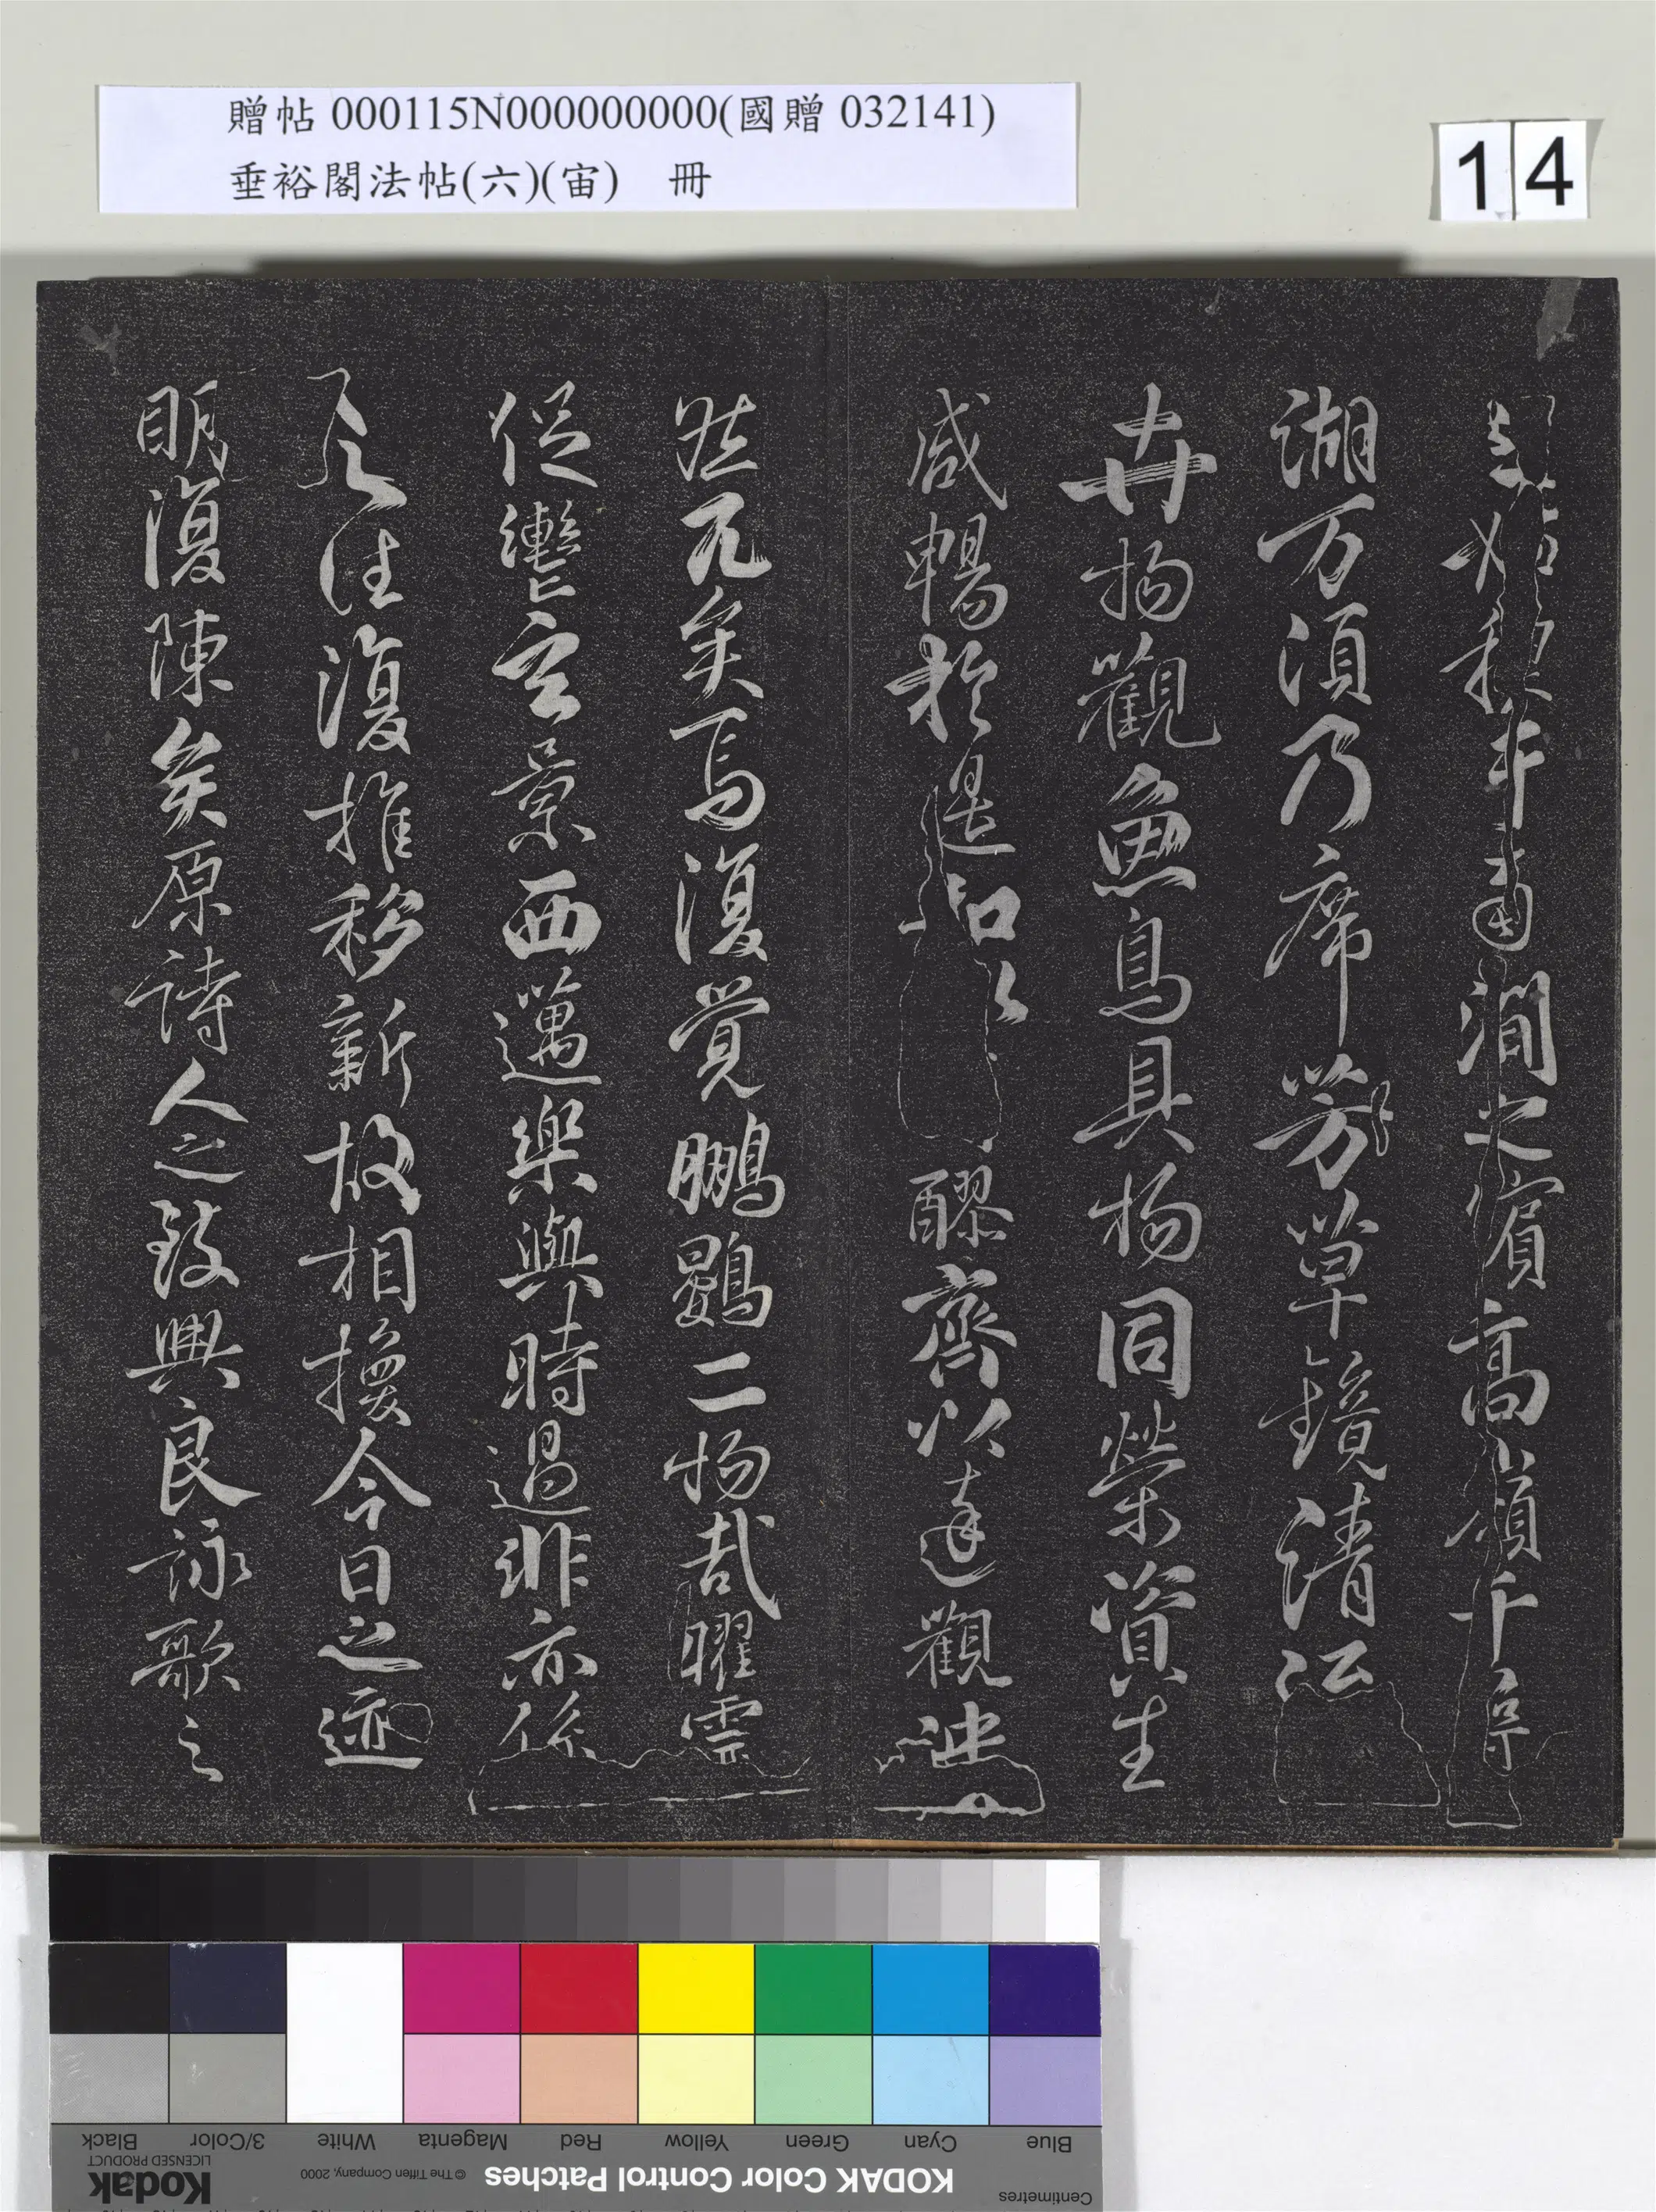 贈帖 000115N000000000(國贈 032141)
垂裕閣法帖(六)(宙) 冊
14
南澗之濱高嶺千尋
湖万頃乃席芳草鏡清
卉物觀魚鳥具物同榮資生
咸暢於是和以醪齊以達觀泱
然兀矣焉復覺鵬鷃二物哉曜靈
促轡玄景西邁樂與時過悲亦係
之往復推移新故相換今日之迹
明復陳矣原詩人之致興良詠歌之
Blue Cyan Green Yellow Red Magenta White 3/Color Black
Centimetres KODAK Color Control Patches © The Tiffen Company, 2000 Kodak
LICENSED PRODUCT